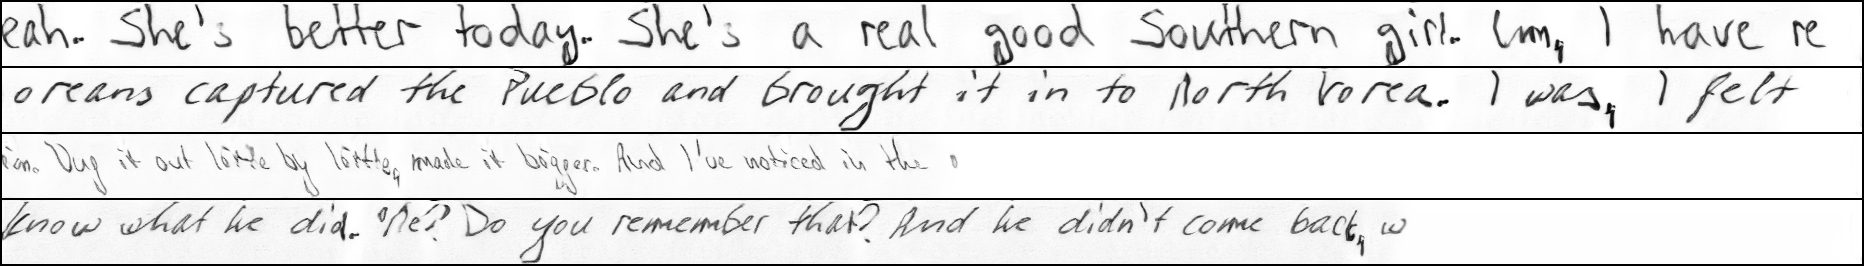 eah. She's better today. She's a real good Southern girl. Um, I have re
oreans captured the Pueblo and brought it in to North Korea. I was, I felt
Dug it out little by little, made it bigger. And I've noticed in the
know what he did. Me? Do you remember that? And he didn't come back, w